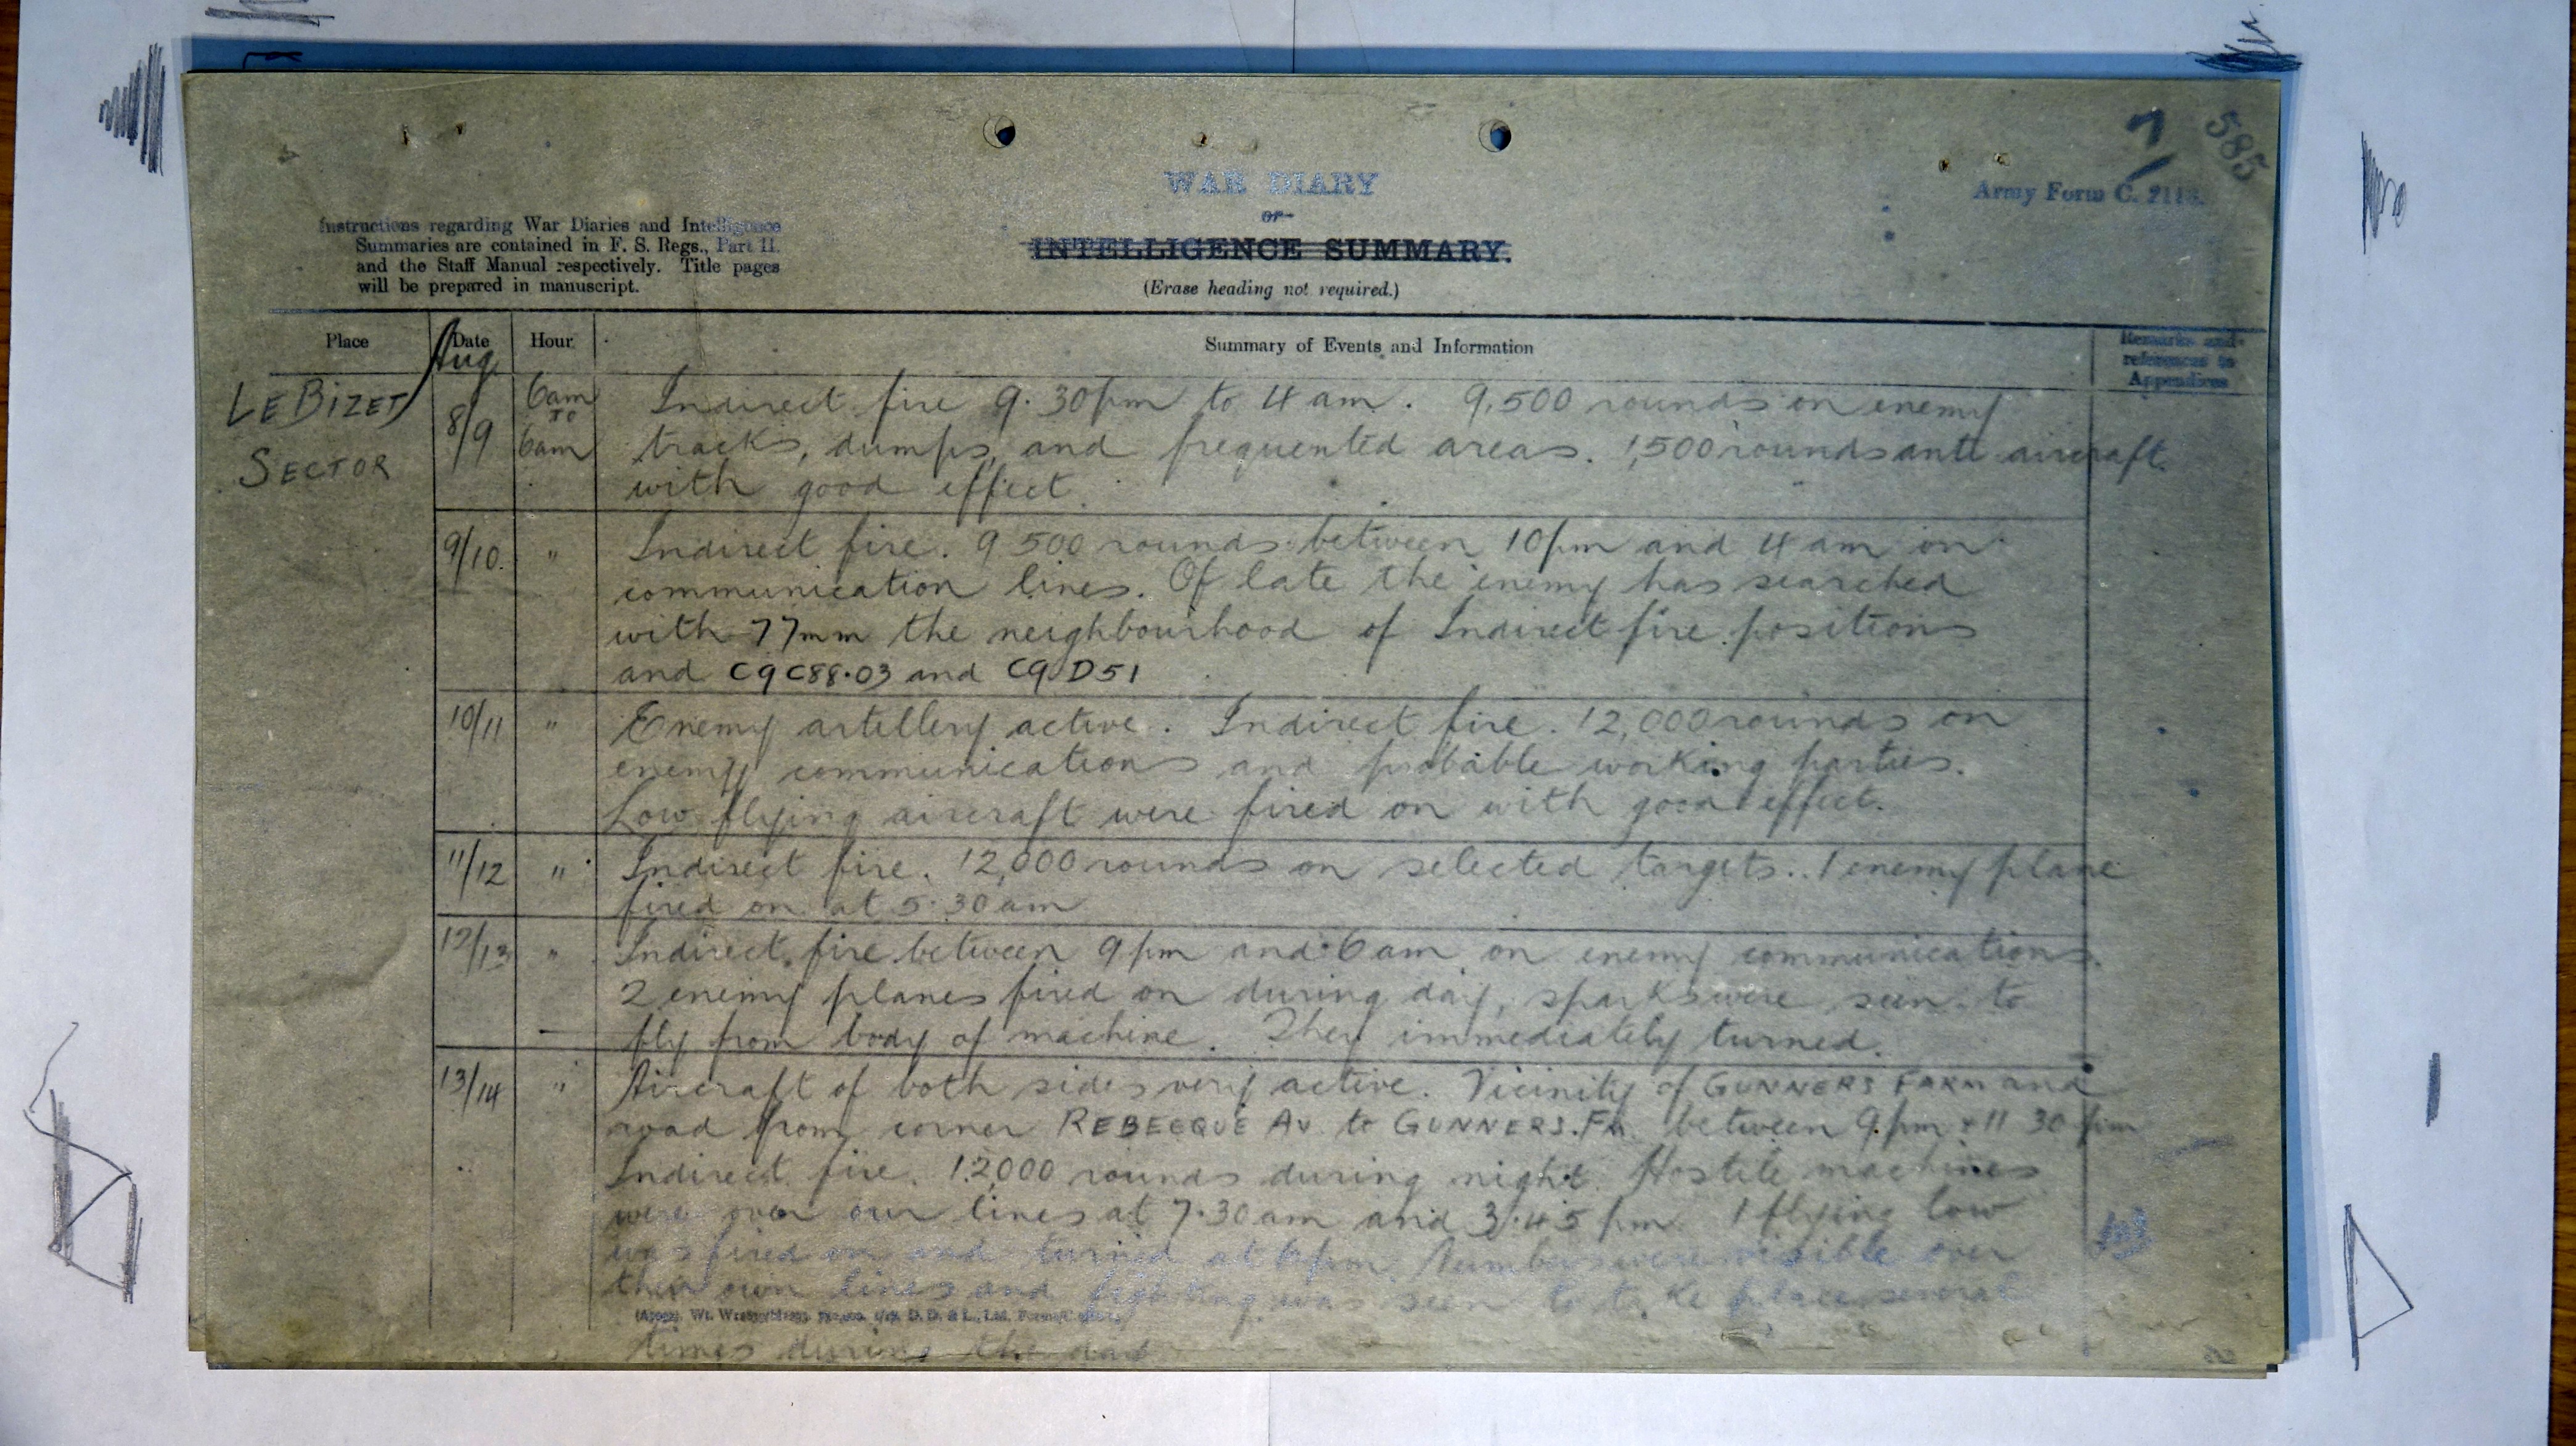 7/
585
WAR DIARY
or
INTELLIGENCE SUMMARY.
(Erase heading not required.)
Army Form C. 2118.
Instructions regarding War Diaries and Intelligence
Summaries are contained in F. S. Regs., Part II.
and the Staff Manual respectively. Title pages
will be prepared in manuscript.
Place Date Hour Summary of Events and Information Remarks and references to Appendices
Aug
LE BIZET
SECTOR
8/9 6am TO 6am Indirect fire 9.30pm to 4 am. 9,500 rounds on enemy
tracks, dumps, and frequented areas. 1,500 rounds anti aircraft
with good effect.
9/10. " Indirect fire. 9 500 rounds between 10pm and 4 am on
communication lines. Of late the enemy has searched
with 77mm the neighbourhood of Indirect fire positions
and C9C88.03 and C9.D51
10/11 " Enemy artillery active. Indirect fire. 12,000 rounds on
enemy communications and probable working parties.
Low flying aircraft were fired on with good effect.
11/12 " Indirect fire. 12,000 rounds on selected targets. 1 enemy plane
fired on at 5.30am
12/13 " Indirect fire between 9pm and 6am on enemy communications.
2 enemy planes fired on during day, sparks were seen to
fly from body of machine. They immediately turned.
13/14 " Aircraft of both sides very active. Vicinity of GUNNERS FARM and
road from corner REBECQUE AV. to GUNNERS.FM. between 9.pm & 11 30 pm
Indirect fire. 12,000 rounds during night. Hostile machines
were over our lines at 7.30am and 3.45 pm 1 flying low
was fired on and turned at pm. Numbers were visible over
their own lines and fighting was seen to take place several
times during the day